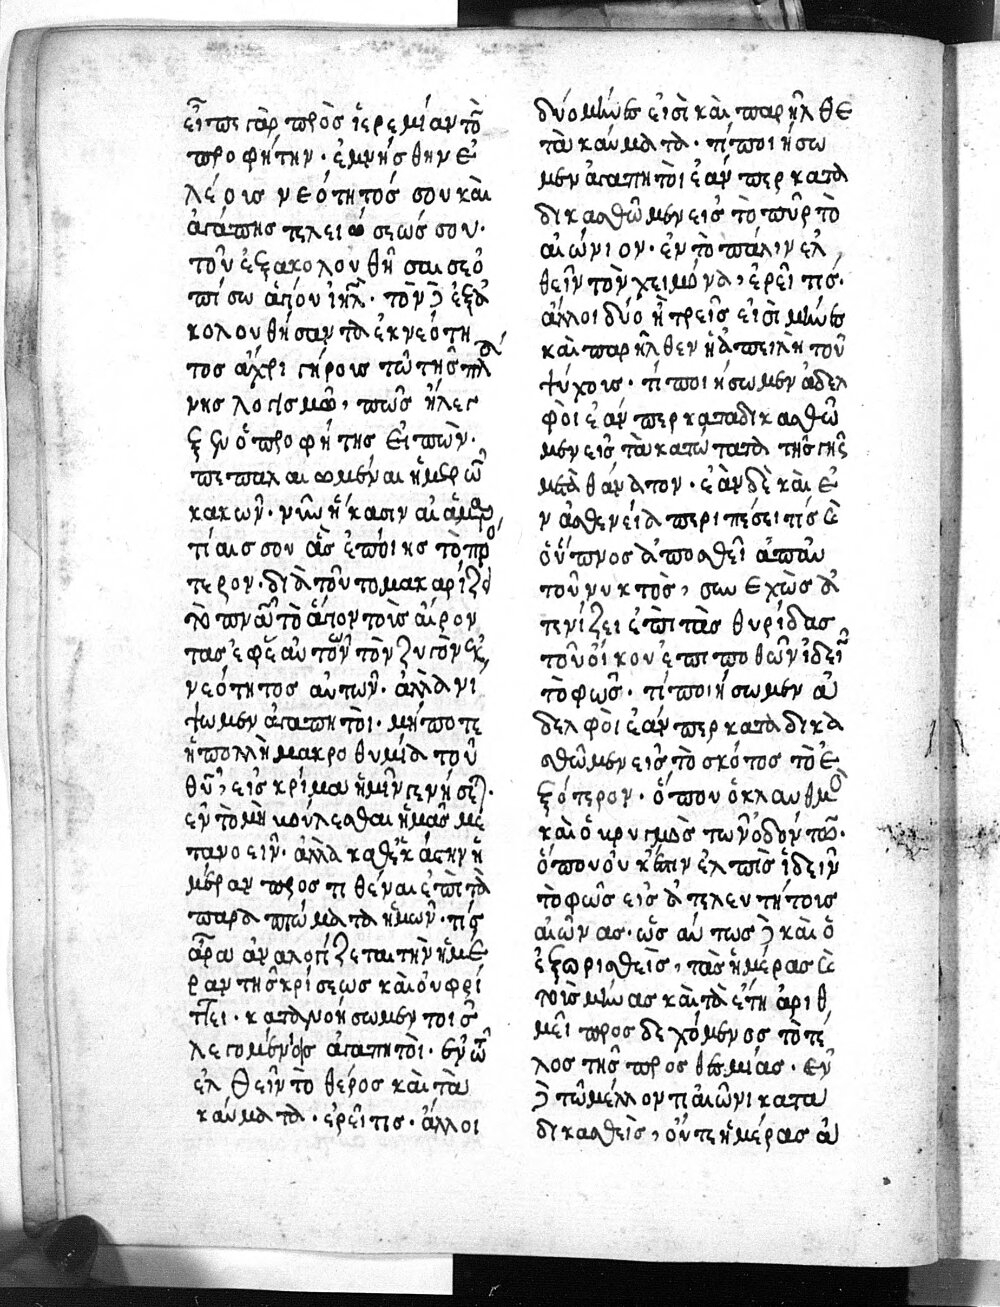 εἶπε γὰρ πρὸς ἱερεμίαν τὸν
προφήτην· ἐμνήσθην ἐ
λέους νεότητός σου καὶ
ἀγάπης τελειώσεώς σου·
τοῦ ἐξακολουθῆσαι σε ὀ
πίσω ἁγίου ἰηλ· τοὺς δὲ ἐξα
κολουθήσαντα ἐκ νεότη
τος ἄχρι γήρους τῶ τῆς πλά
νης λογισμῶ, πῶς ἤλεγ
ξεν ὁ προφήτης εἰπών·
πεπαλαιωμέναι ἡμερῶν
κακῶν· νῦν ἥκασιν αἱ ἁμαρ
τίαι σου ἃς ἐποίεις τὸ πρό
τερον· διὰ τοῦτο μακαρίζει
τὸ πνα τὸ ἅγιον τοὺς αἴρον
τας ἐφ' ἑαυτῶν τὸν ζυγὸν ἐκ
νεότητος αὐτῶν· ἀλλὰ νί
ψωμεν ἀγαπητοί· μήποτε
ἡ πολλὴ μακροθυμία τοῦ
θυ, εἰς κρίμα ἡμῖν γενήσεται·
ἐν τὸ μὴ βούλεσθαι ἡμᾶς με
τανοεῖν· ἀλλὰ καθεκάστην ἡ
μέραν προστιθέναι ἐπὶ τὰ
παραπτώματα ἡμῶν· τίς
ἄρα ἀναλογίζεται τὴν ἡμέ
ραν τῆς κρίσεως καὶ οὐ φρί
ττει· κατανοήσωμεν τοῖς
λεγομένοις ἀγαπητοί· ἐν τῶ
ἐλθεῖν τὸ θέρος καὶ τὰ
καύματα· ἐρεῖ τις· ἄλλοι
δύο μῆνες εἰσὶ καὶ παρῆλθε
τὰ καύματα· τί ποιήσω
μεν ἀγαπητοὶ ἐάν περ κατα
δικασθῶμεν εἰς τὸ πῦρ τὸ
αἰώνιον· ἐν τὸ πάλιν ἐλ
θεῖν τὸν χειμόνα, ἐρεῖ τις·
ἄλλοι δύο ἢ τρεῖς εἰσὶ μῆνες
καὶ παρῆλθεν ἡ ἀπειλὴ τοῦ
ψύχους· τί ποιήσωμεν ἀδελ
φοὶ ἐάν περ καταδικασθῶ
μεν εἰς τὰ κατώτατα τῆς γῆς
μετὰ θάνατον· ἐὰν δὲ καὶ ἐ
ν ἀσθενεία περιπέσει τίς καὶ
ὁ ὕπνος ἀποσθεῖ ἀπ' αὐ
τοῦ νυκτὸς, συνεχῶς ἀ
τενίζει ἐπὶ τὰς θυρίδας
τοῦ οἴκου ἐπιποθῶν ἰδεῖν
τὸ φῶς· τί ποιήσωμεν ἀ
δελφοὶ ἐάν περ καταδικα
σθῶμεν εἰς τὸ σκότος τὸ ἐ
ξότερον· ὅπου ὁ κλαυθμὸς
καὶ ὁ βρυγμὸς τῶν ὀδόντων·
ὅπου οὐκ ἔστιν ἐλπὶς ἰδεῖν
τὸ φῶς εἰς ἀτελευτήτους
αἰῶνας· ὡσαύτως δὲ καὶ ὁ
ἐξορισθεὶς, τὰς ἡμέρας καὶ
τοὺς μῆνας καὶ τὰ ἔτη ἀριθ
μεῖ προσδεχόμενος τὸ τέ
λος τῆς προσθεσμίας· ἐν
δὲ τῶ μέλλοντι αἰῶνι κατα
δικασθεὶς, οὔτε ἡμέρας ἀ